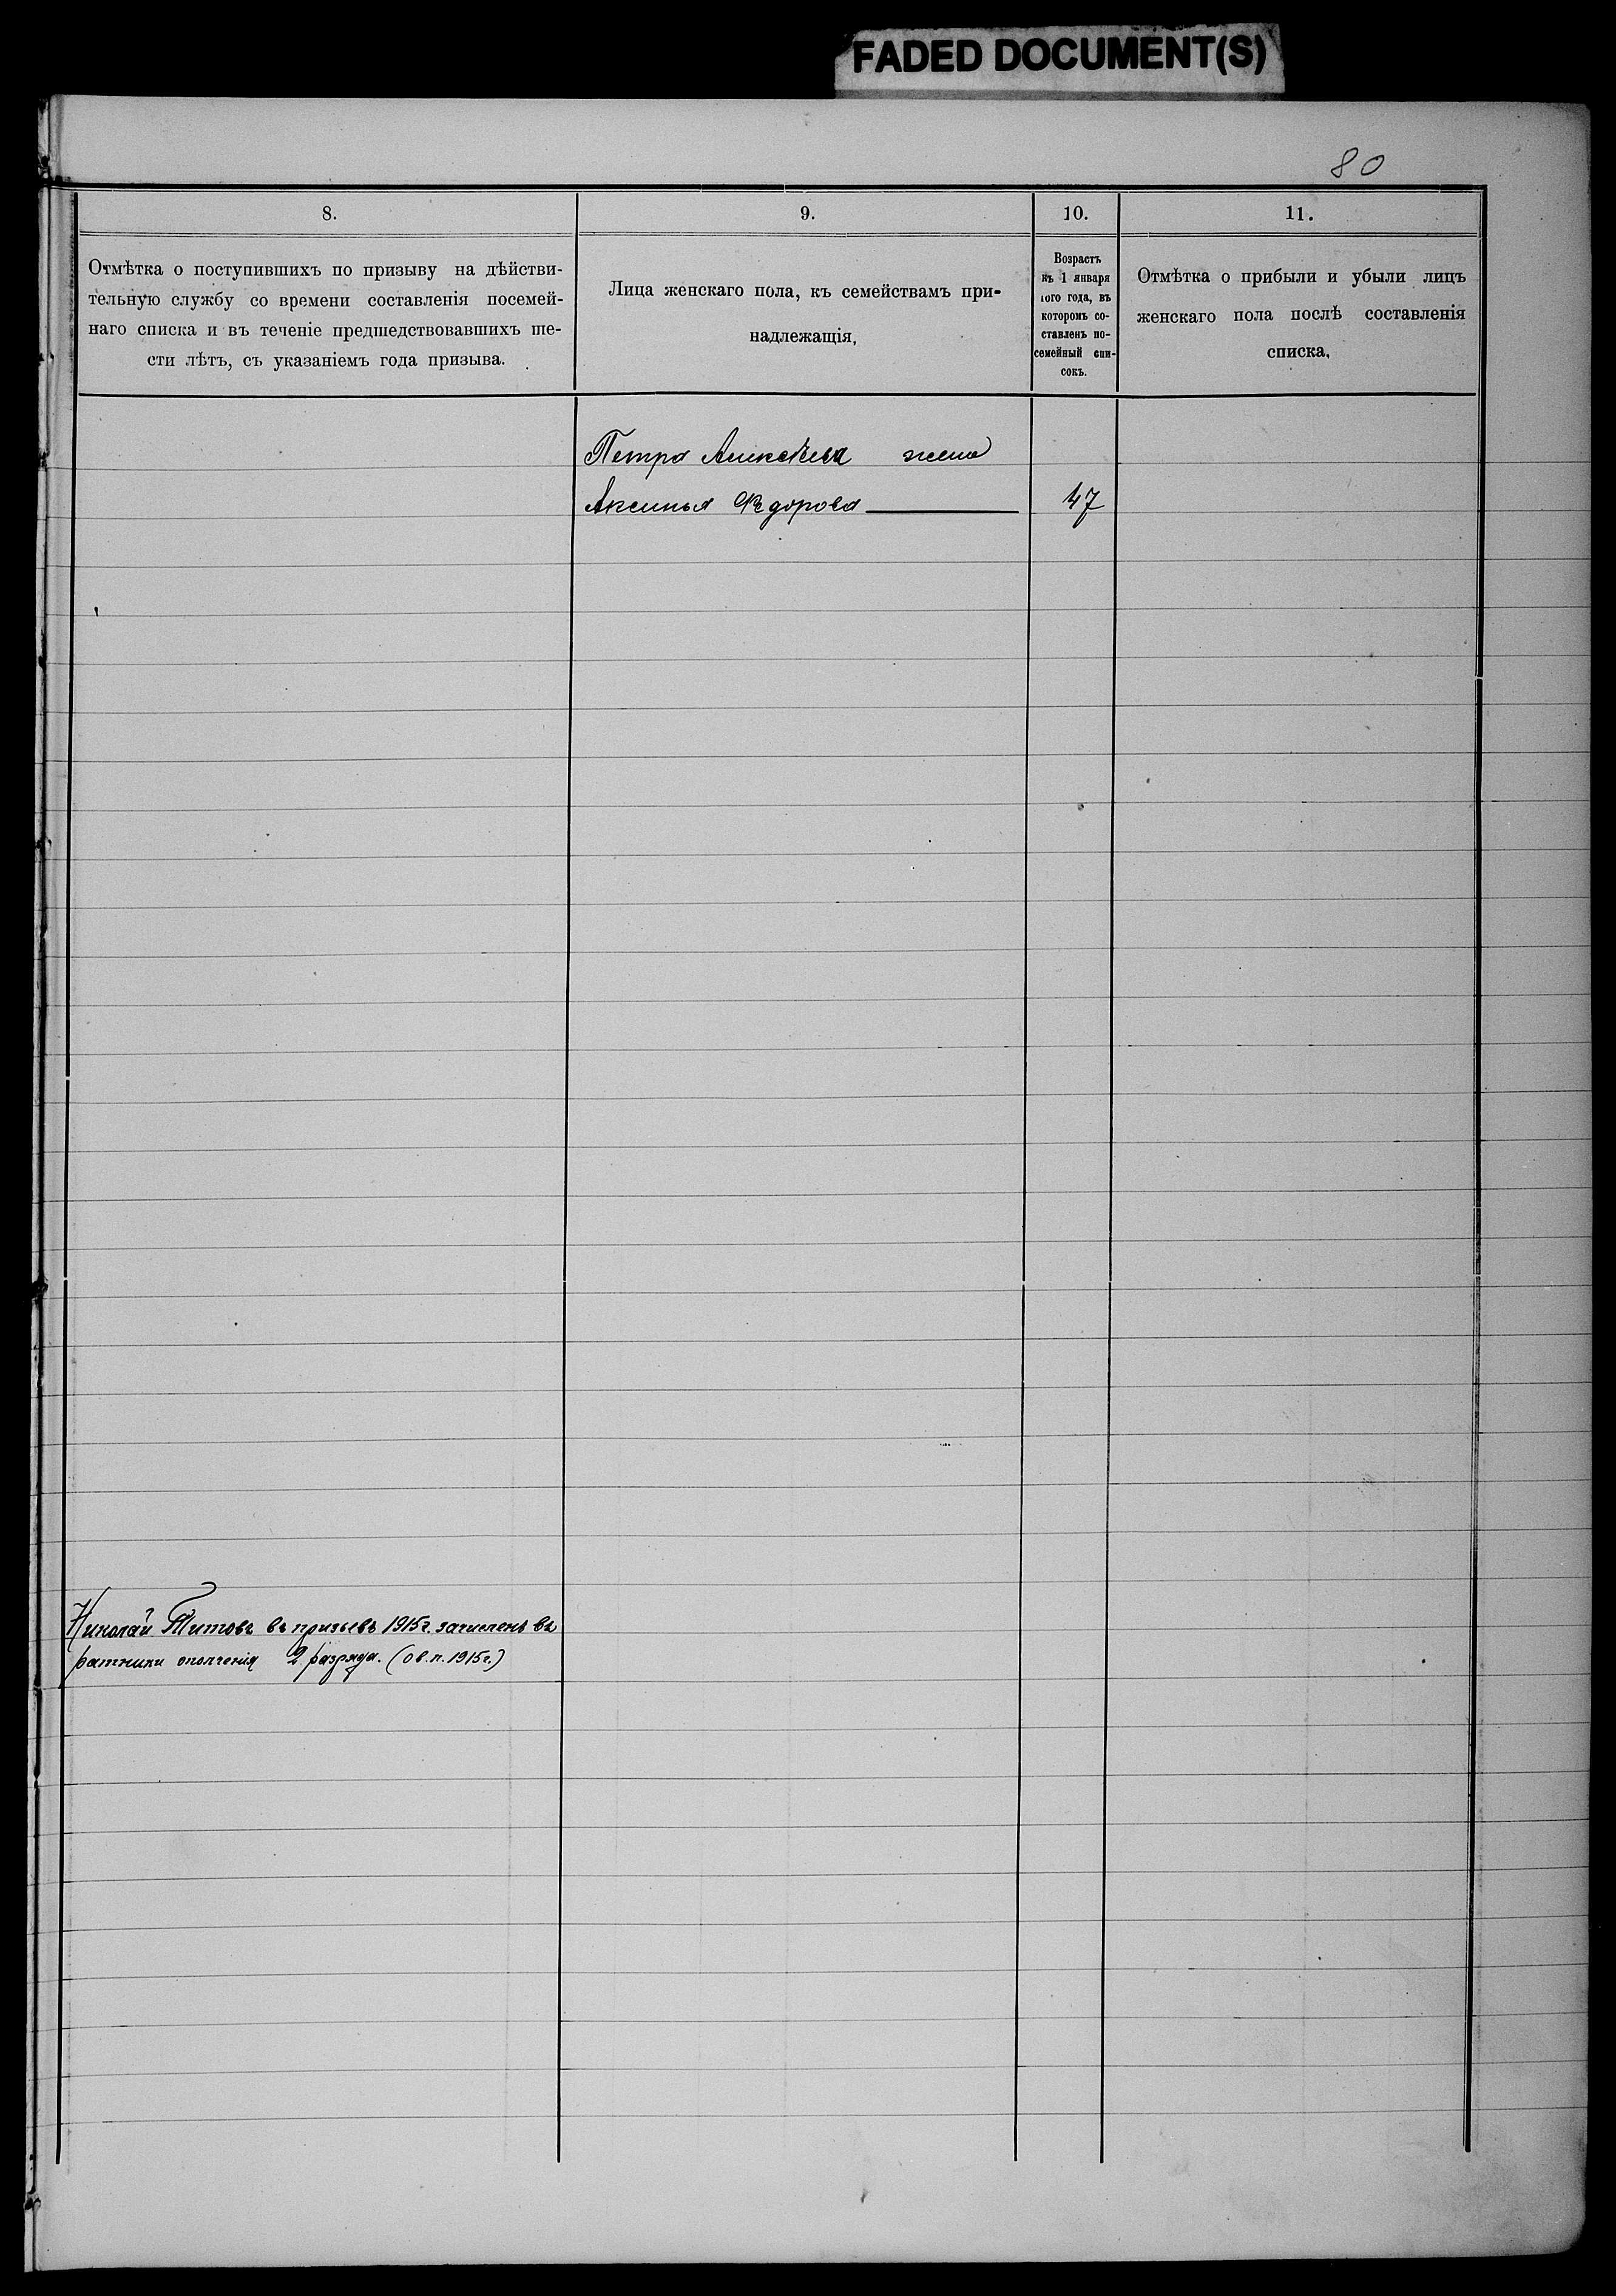 FADED DOCUMENT(S)
80
8.
9.
10.
11.
Отмѣтка о поступившихъ по призыву на дѣйстви-
тельную службу со времени составленія посемей-
наго списка и въ теченіе предшедствовавшихъ ше-
сти лѣтъ, съ указаніемъ года призыва.
Лица женскаго пола, къ семействамъ при-
надлежащія,
Возрастъ
къ 1 января
того года, въ
которомъ со-
ставленъ по-
семейный спи-
сокъ.
Отмѣтка о прибыли и убыли лицъ
женскаго пола послѣ составленія
списка.
Петра Алексѣева жена
Аксинья Ѳедорова 47
Николай Титовъ въ призывъ 1915 г. зачисленъ въ
ратники ополченія 2 разряда. (о в. п. 1915 г.)